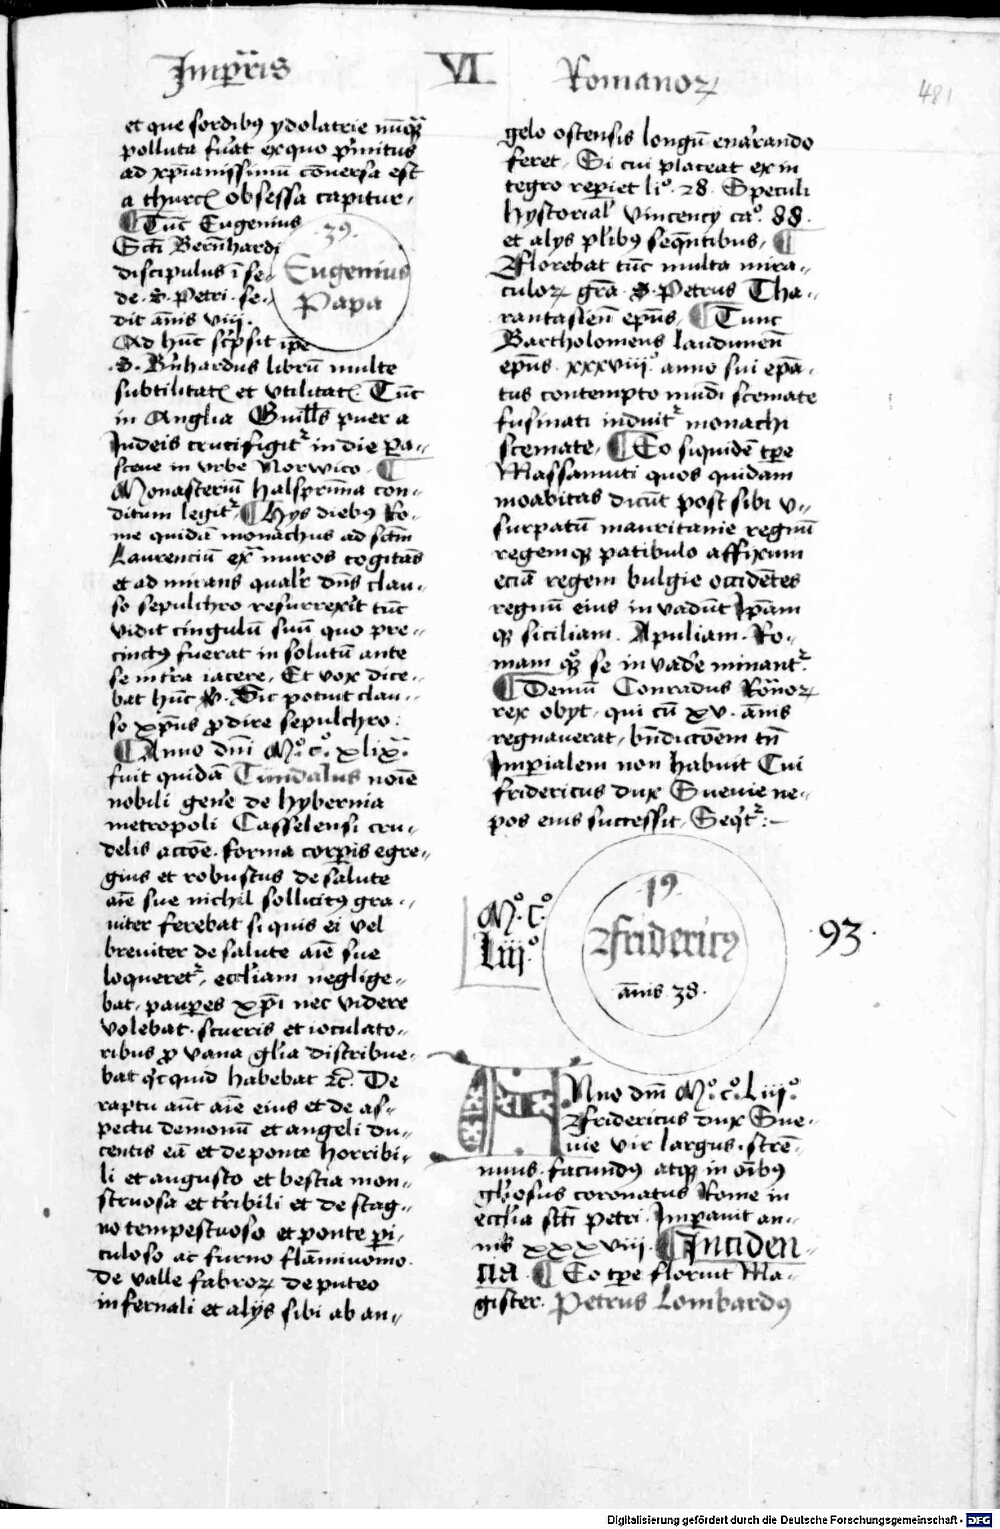 Imp̄ris VI Romanoꝝ
481
et que sordibꝰ ydolatrie nūqᷓ
polluta fuᷓat ex quo pͥmitus
ad xp̄ianissimū cōversa est
a thurcꝭ obsessa capitur.
¶ Tūc Eugenius
Scī Bern̄hardi
discipulus ī se⸗
de .S. Petri . se⸗
dit ān̄is viij.
39.
Eugenius
Papa
Ad hūc scͥpsit ip̄e
.S. Bn̄hardus librū multe
subtilitatꝭ et vtilitatꝭ Tūc
in Anglia Guill̄s puer a
Judeis crucifigitᷣ in die pa⸗
sceue in vrbe Norwico. ¶
Monasteriū halsprūna con⸗
ditum legitᷣ. ¶ Hys diebꝰ Ro⸗
me quidā monachus ad sctm̄
Laurenciū exᷓ muros cogitās
et ad mirans qualr̄ dn̄s clau⸗
so sepulchro resurrexit tūc
vidit cingulū suū quo pre⸗
cinctꝰ fuerat in solutū ante
se intra iacere. Et vox dice⸗
bat hūc v̄. Sic potuit clau⸗
so xp̄us ꝓdire sepulchro.
¶ Anno dn̄i Mᵒ. cᵒ. xlixᵒ.
fuit quidā Tundalus noīe
nobili genᷓe de hybernia
metropoli Casselensi cru⸗
delis accōe. forma corꝑis egre⸗
gius et robustus de salute
aīe sue nichil sollicitꝰ gra⸗
uiter ferebat si quis ei vel
breuiter de salute aīe sue
loqueretᷣ. eccl̄iam neglige⸗
bat. pauꝑes xp̄i nec videre
volebat. scurris et ioculato⸗
ribus ꝓ vana gl̄ia distribue⸗
bat qͥcquid habebat ⁊c̄. De
raptu aūt aīe eius et de as⸗
pectu demonū et angeli du⸗
centis eā et de ponte horribi⸗
li et augusto et bestia mon⸗
struosa et tͬribili et de stag⸗
no tempestuoso et ponte ꝑi⸗
culoso ac furno flāmivomo.
de valle fabroꝝ de puteo
infernali et alijs sibi ab an⸗
gelo ostensis longū enarrando
feret. Si cui placeat ex in
tegro reꝑiet liᵒ. 28. Speculi
hystorial̄ vincency caᵒ. 88.
et alys pl̄ibꝰ seqn̄tibus. ¶
Florebat tūc multa mira⸗
culoꝝ gr̄a .S. Petrus Tha⸗
rantasieñ ep̄us. ¶ Tunc
Bartholomeus laudunen̄
ep̄us. xxxviijᵒ. anno sui ep̄a⸗
tus contempto mūdi scemate
fusinati induitᷣ monachi
scemate. ¶ Eo siquidē tꝑe
Massamuti quos quidam
moabitas dicūt post sibi v⸗
surpatū mauritanie regnū
regemqꝫ patibulo affixum
eciā regem bulgie occidētes
regnū eius in vadūt Ip̄am
qꝫ siciliam. Apuliam. Ro⸗
mam qꝫ se in vade minantᷣ.
¶ Demū Conradus Rōnoꝝ
rex obyt. qui cū xv. ān̄is
regnaverat. bn̄dictōem tn̄
Imꝑialem non habuit Cui
fridericus dux Sueuie ne⸗
pos eius successit. Seqͥtᷣ:-
Mᵒ. Cᵒ.
Liijᵒ
19.
Fridericꝰ
ān̄is 38.
93.
Anno dn̄i Mᵒ. cᵒ. Liijᵒ.
Fridericus dux Sue⸗
uie vir largus. strē⸗
nuus. facundꝰ atqꝫ in oībꝰ
gl̄iosus coronatus Rome in
eccl̄ia sct̄i Petri. Imꝑauit an⸗
nis xxxviij. ¶ Inciden⸗
tia. ¶ Eo tꝑe floruit Ma⸗
gister. Petrus Lombardꝰ
Digitalisierung gefördert durch die Deutsche Forschungsgemeinschaft - DFG